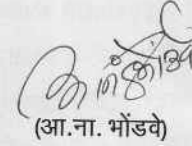 (आ.ना. भोंडवे)